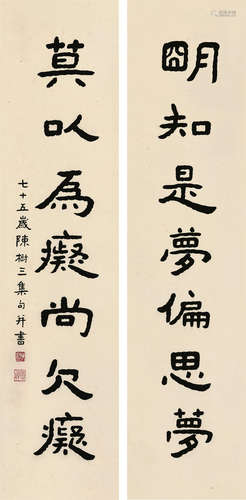 明知是夢偏思夢
莫以為癡尚欠癡
七十五歲陳樹三集句并書